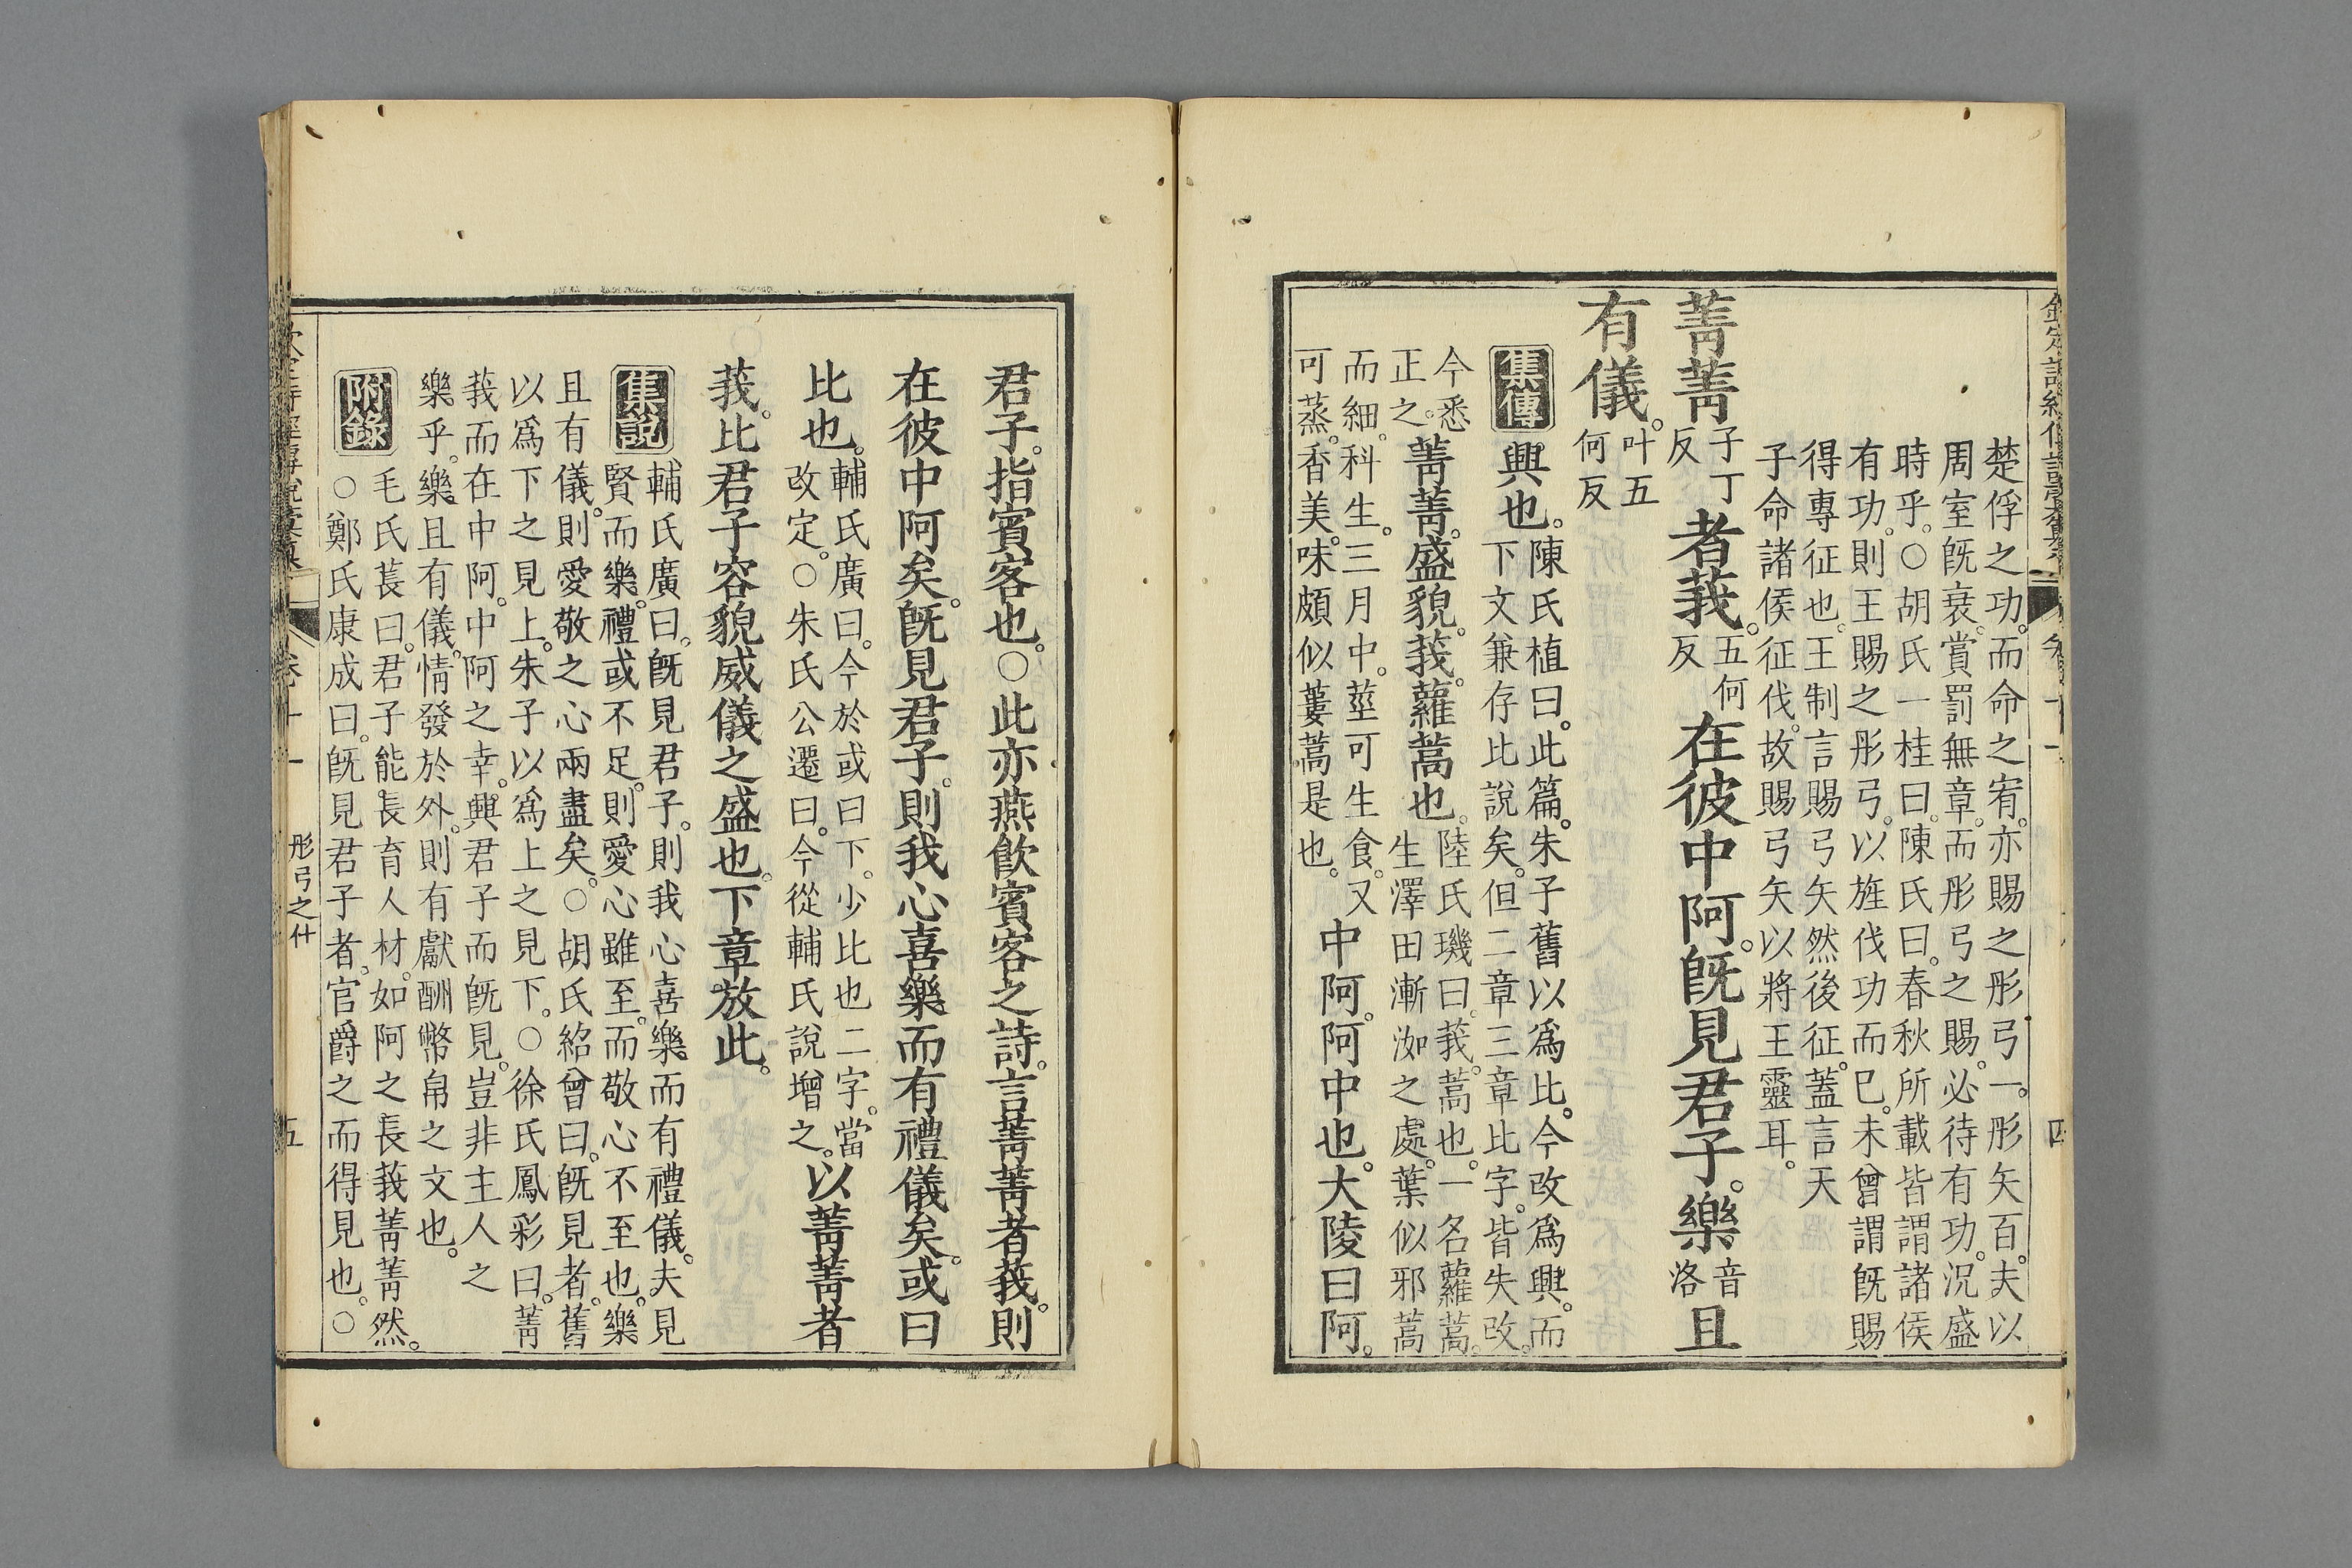 楚俘之功。而命之宥。亦賜之彤弓一。彤矢百。夫以
周室旣衰。賞罰無章。而彤弓之賜。必待有功。況盛
時乎。○胡氏一桂曰。陳氏曰。春秋所載皆謂諸侯
有功。則王賜之彤弓。以旌伐功而已。未曾謂旣賜
得專征也。王制言賜弓矢然後征。蓋言天
子命諸侯征伐。故賜弓矢以將王靈耳。
菁菁子丁反者莪。五何反在彼中阿。旣見君子。樂音洛且
有儀。叶五何反
集傳 興也。陳氏植曰。此篇。朱子舊以爲比。今改爲興。而
下文兼存比說矣。但二章三章比字。皆失改。
今悉
正之。菁菁。盛貌。莪。蘿蒿也。陸氏璣曰。莪。蒿也。一名蘿蒿。
生澤田漸洳之處。葉似邪蒿
而細。科生。三月中。莖可生食。又
可蒸。香美。味頗似蔞蒿是也。中阿。阿中也。大陵曰阿。
君子。指賓客也。○此亦燕飮賓客之詩。言菁菁者莪。則
在彼中阿矣。旣見君子。則我心喜樂而有禮儀矣。或曰
比也。輔氏廣曰。今於或曰下。少比也二字。當
改定。○朱氏公遷曰。今從輔氏說增之。以菁菁者
莪。比君子容貌威儀之盛也。下章放此。
集說 輔氏廣曰。旣見君子。則我心喜樂而有禮儀。夫見
賢而樂。禮或不足。則愛心雖至。而敬心不至也。樂
且有儀。則愛敬之心兩盡矣。○胡氏紹曾曰。旣見者。舊
以爲下之見上。朱子以爲上之見下。○徐氏鳳彩曰。菁
莪而在中阿。中阿之幸。興君子而旣見。豈非主人之
樂乎。樂且有儀。情發於外。則有獻酬幣帛之文也。
附錄 毛氏萇曰。君子能長育人材。如阿之長莪菁菁然。
○鄭氏康成曰。旣見君子者。官爵之而得見也。○
彤弓之什
五